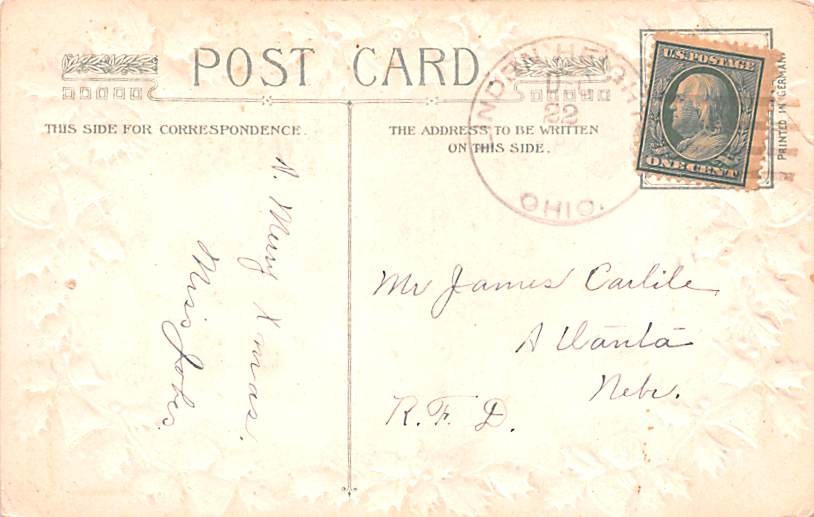 POST CARD
THIS SIDE FOR CORRESPONDENCE.
THE ADDRESS TO BE WRITTEN
ON THIS SIDE.
22
OHIO.
U.S. POSTAGE
ONE CENT
PRINTED IN GERMANY
A. Merry Xmas.
Miss
Mr James Carlile
Atlanta
Nebr.
R. F. D.